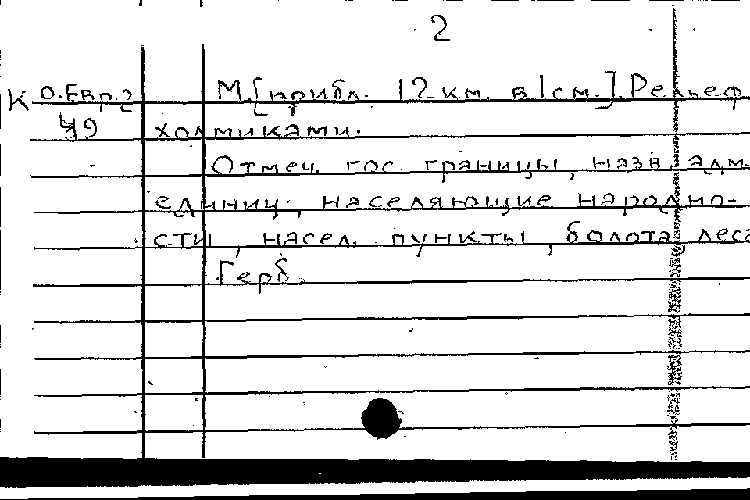 2
К О.Евр.2 М.[прибл. 12 км в 1 см.]. Рельеф
49 холмиками.
Отмеч. гос. границы, назв. адм.
единиц, населяющие народно-
сти, насел. пункты, болота, леса
Герб.